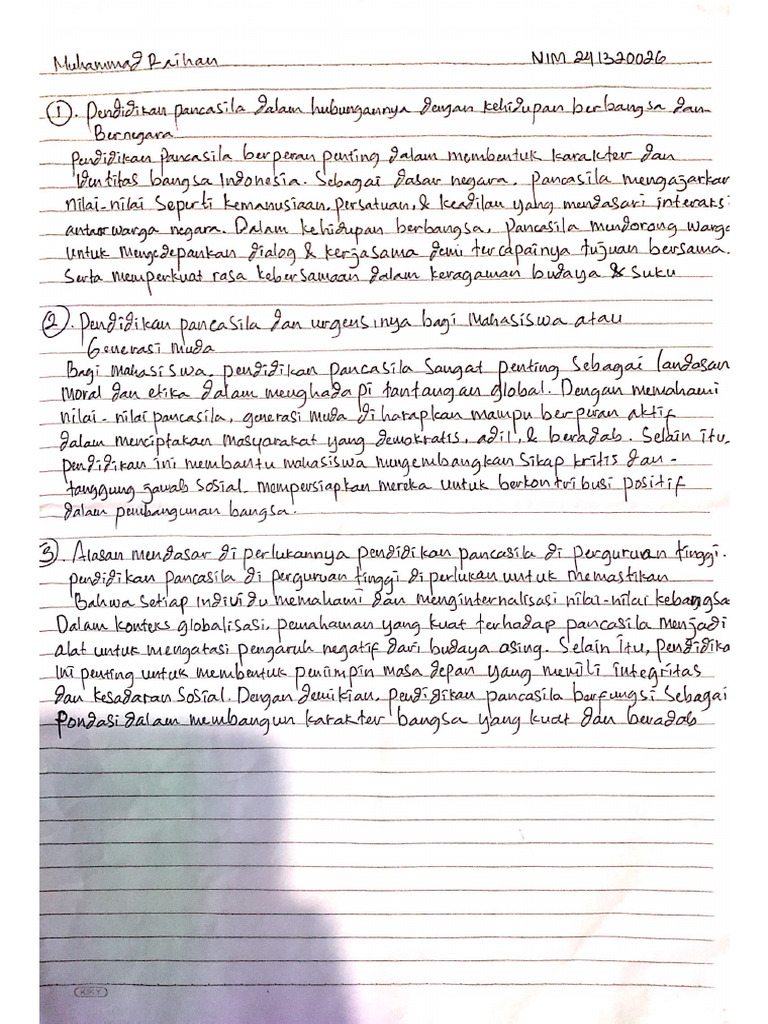 Muhammad Raihan NIM 241320026
1. Pendidikan pancasila dalam hubungannya dengan kehidupan berbangsa dan
Bernegara
Pendidikan Pancasila berperan penting dalam membentuk karakter dan
identitas bangsa Indonesia. Sebagai dasar negara, Pancasila mengajarkan
nilai-nilai Seperti Kemanusiaan, persatuan, & keadilan yang mendasari interaksi
antar warga negara. Dalam kehidupan berbangsa, Pancasila mendorong warga
untuk mengedepankan dialog & kerjasama demi tercapainya tujuan bersama.
Serta memperkuat rasa kebersamaan dalam keragaman budaya & suku
2. Pendidikan pancasila dan urgensinya bagi Mahasiswa atau
Generasi Muda
Bagi mahasiswa, pendidikan pancasila Sangat penting Sebagai landasan
Moral dan etika dalam menghadapi tantangan global. Dengan memahami
nilai-nilai pancasila, generasi muda diharapkan mampu berperan aktif
dalam menciptakan Masyarakat yang demokratis, adil, & beradab. Selain itu,
pendidikan ini membantu mahasiswa mengembangkan Sikap kritis dan-
tanggung jawab sosial. mempersiapkan mereka untuk berkontribusi positif
dalam pembangunan bangsa.
3. Alasan mendasar di perlukannya pendidikan pancasila di perguruan tinggi.
pendidikan pancasila di perguruan tinggi di perlukan untuk memastikan
Bahwa setiap individu memahami dan menginternalisasi nilai-nilai kebangsa
Dalam konteks globalisasi, pemahaman yang kuat terhadap pancasila menjadi
alat untuk mengatasi pengaruh negatif dari budaya asing. Selain Itu, pendidika
Ini penting untuk membentuk pemimpin masa depan yang memili integritas
dan kesadaran Sosial. Dengan demikian, pendidikan pancasila berfungsi Sebagai
Pondasi dalam membangun karakter bangsa yang kuat dan beradab
KKY